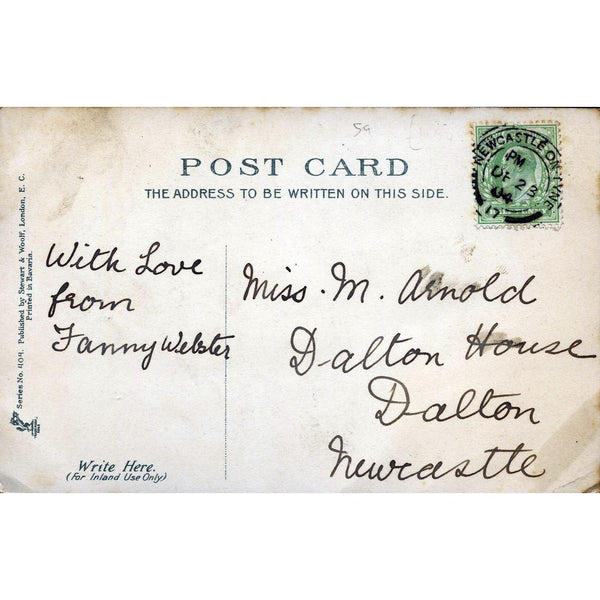 59
POST CARD
THE ADDRESS TO BE WRITTEN ON THIS SIDE.
NEWCASTLE-ON-TYNE
PM
DE 28
04
Series No. 404. Published by Stewart & Woolf, London, E. C.
Printed in Bavaria.
With Love
from
Fanny Webster
Write Here.
(For Inland Use Only)
Miss. M. Arnold
Dalton House
Dalton
Newcastle